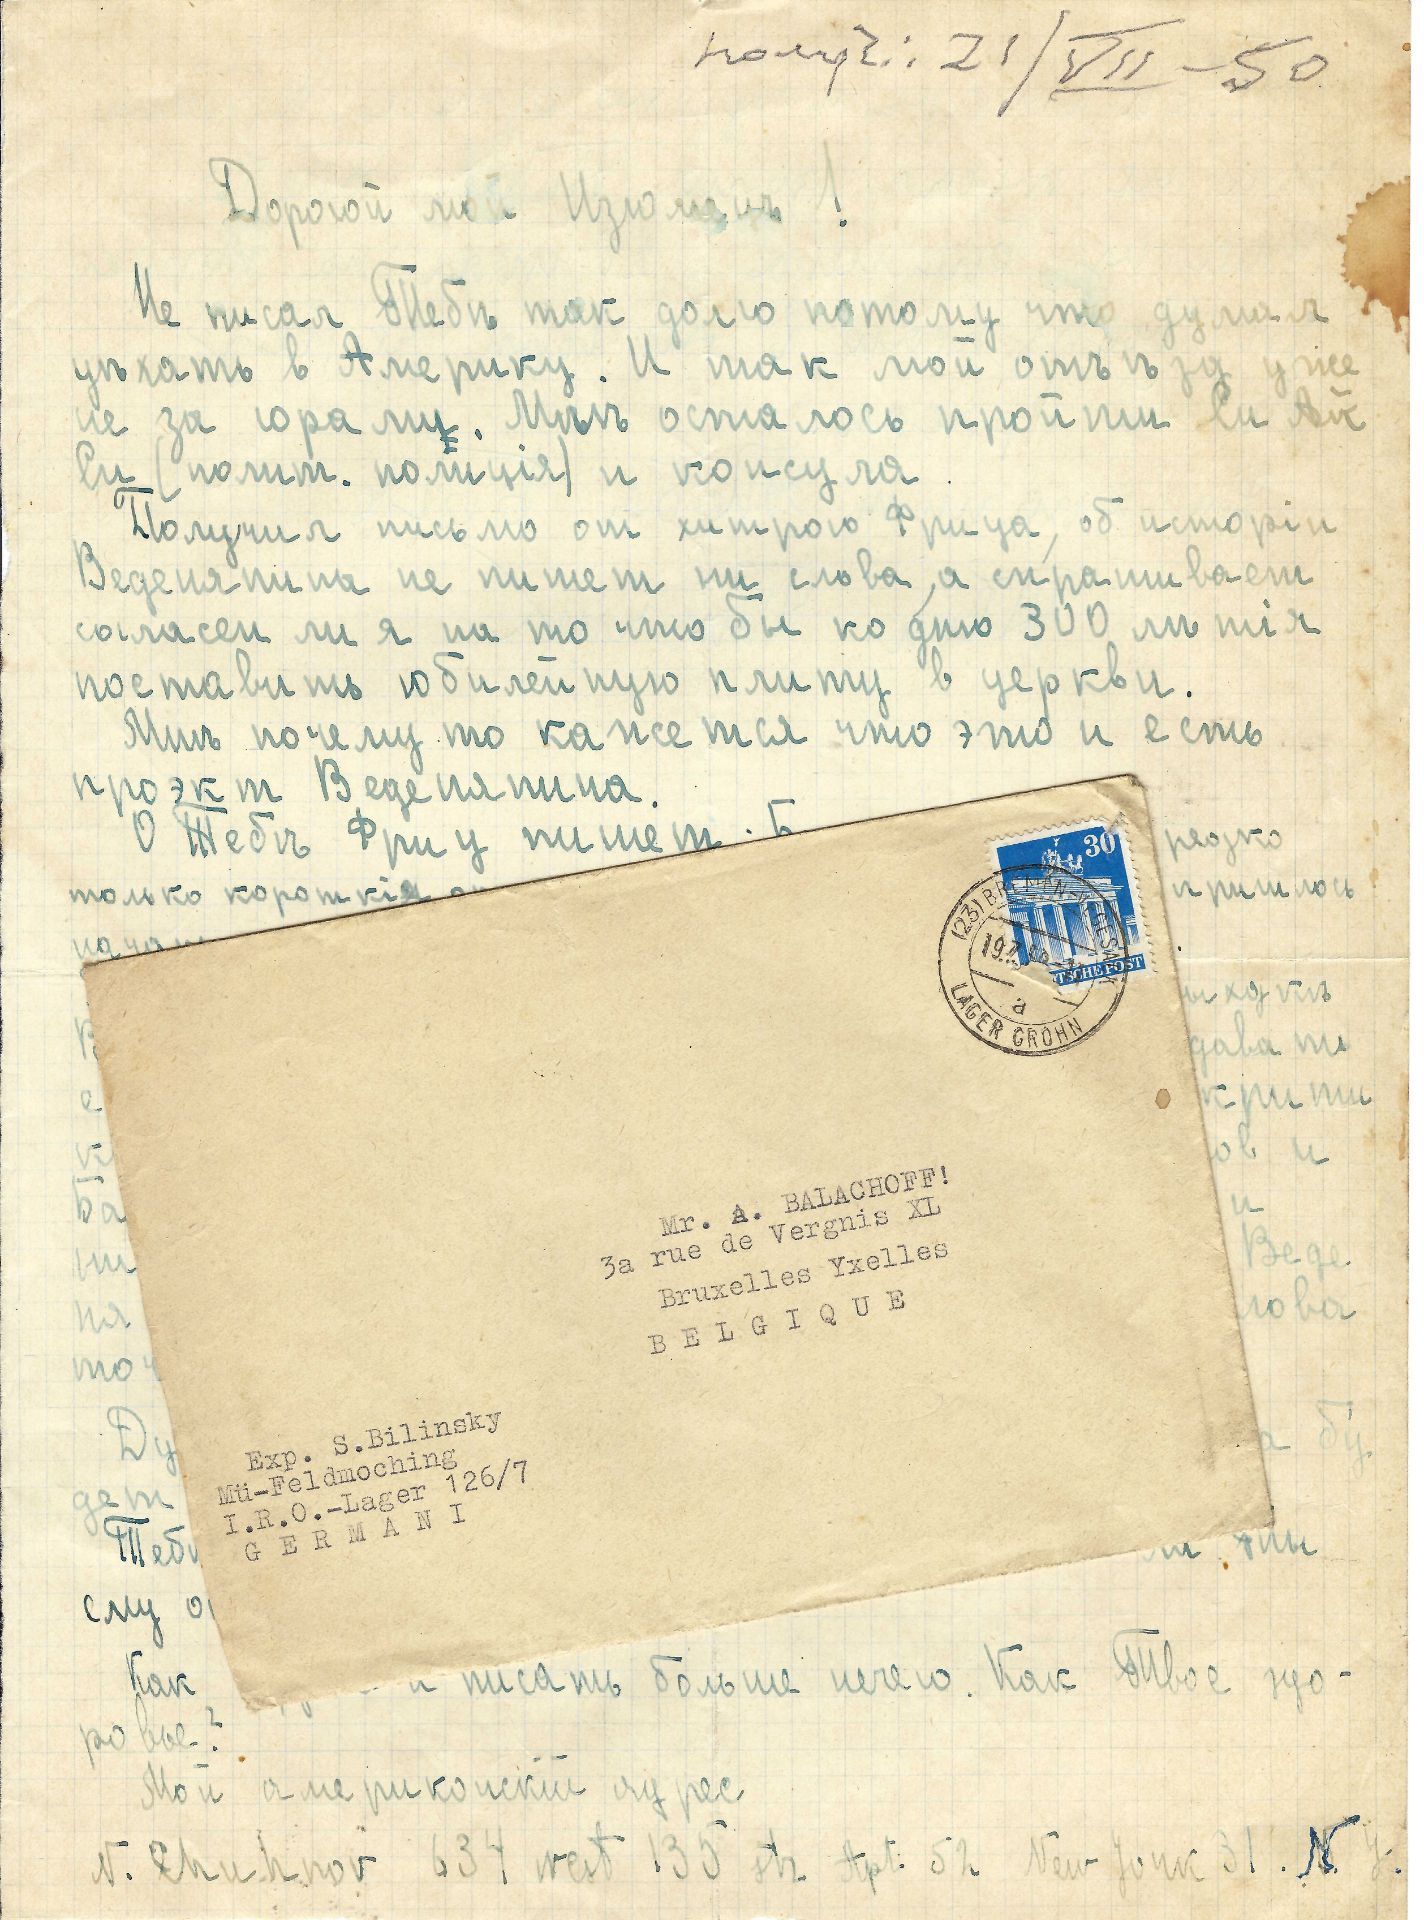 получ.: 21/VII-50
Дорогой мой Изюмецъ!
Не писал Тебѣ так долго потому что думал
уѣхать в Америку. И так мой отъѣзд уже
не за горами. Мнѣ осталось пройти Си Ай
Си (полит. полиція) и консула.
Получил письмо от хитрого Фрица, об исторіи
Веденяпина не пишет ни слова, а спрашивает
согласен ли я на то что бы ко дню 300 лѣтія
поставить юбилейную плиту в церкви.
Мнѣ почему то кажется что это и есть
проэкт Веденяпина.
О Тебѣ Фриц пишет.
рѣзко
только короткія
пришлось
нача
ыходкѣ
давати
е
крити
к
ов и
Ба
и
Веде
ня
лова
точ
Ду
а бу
дет
Тебѣ
ли ты
ему о
Как
и писать больше нечего. Как Твое здо-
ровье?
Мой американскій адрес
634 west 135 str Apt. 52 New York 31. N.Y.
30
DEUTSCHE POST
(23) BREMEN-VEGESACK
19.7.
a
LAGER GROHN
Mr. A. BALACHOFF!
3a rue de Vergnis XL
Bruxelles Yxelles
B E L G I Q U E
Exp. S.Bilinsky
Mü-Feldmoching
I.R.O.-Lager 126/7
G E R M A N I